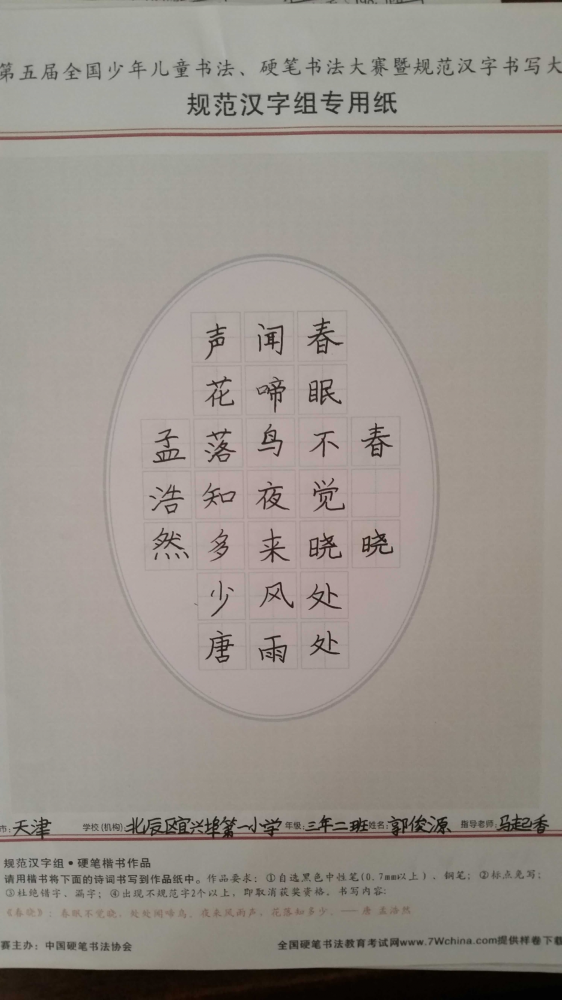 第五届全国少年儿童书法、硬笔书法大赛暨规范汉字书写大
规范汉字组专用纸
春晓
春眠不觉晓处处
闻啼鸟夜来风雨
声花落知多少唐
孟浩然
市：天津 学校(机构)：北辰区宜兴埠第一小学 年级：三年二班 姓名：郭俊源 指导老师：马起香
规范汉字组·硬笔楷书作品
请用楷书将下面的诗词书写到作品纸中。作品要求：①自选黑色中性笔(0.7mm以上)、钢笔；②标点免写；
③杜绝错字、漏字；④出现不规范字2个以上，即取消获奖资格。书写内容：
《春晓》：春眠不觉晓，处处闻啼鸟。夜来风雨声，花落知多少。——唐 孟浩然
赛主办：中国硬笔书法协会 全国硬笔书法教育考试网www.7Wchina.com提供样卷下载